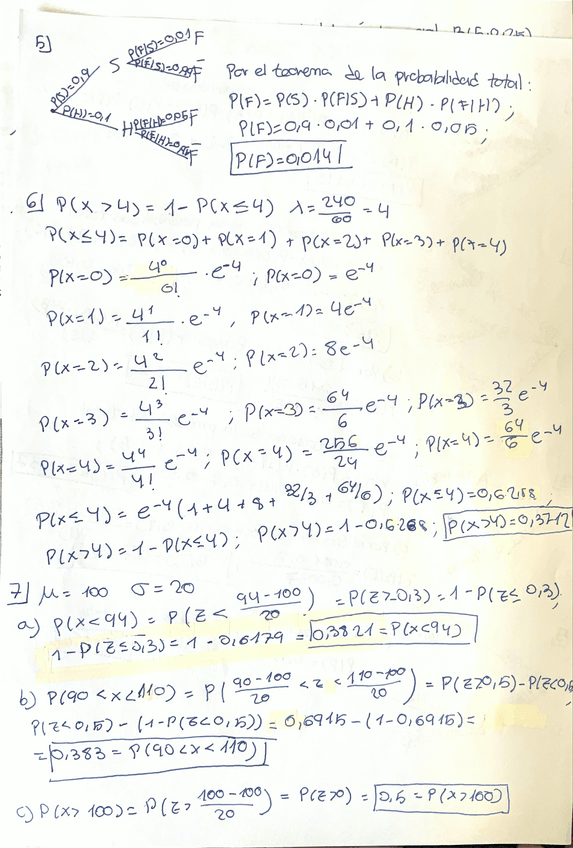 5]
P(S)=0,9 S P(F|S)=0,01 F
P(F̅|S)=0,99 F̅
P(H)=0,1 H P(F|H)=0,05 F
F̅
Por el teorema de la probabilidad total:
P(F)=P(S)·P(F|S)+P(H)·P(F|H);
P(F)=0,9·0,01+0,1·0,05;
P(F)=0,014
6] P(x>4)=1-P(x≤4) λ=240/60=4
P(x≤4)=P(x=0)+P(x=1)+P(x=2)+P(x=3)+P(x=4)
P(x=0)=4⁰/0! ·e⁻⁴; P(x=0)=e⁻⁴
P(x=1)=4¹/1! ·e⁻⁴, P(x=1)=4e⁻⁴
P(x=2)=4²/2! e⁻⁴; P(x=2)=8e⁻⁴
P(x=3)=4³/3! e⁻⁴; P(x=3)=64/6 e⁻⁴; P(x=3)=32/3 e⁻⁴
P(x=4)=4⁴/4! e⁻⁴; P(x=4)=256/24 e⁻⁴; P(x=4)=64/6 e⁻⁴
P(x≤4)=e⁻⁴(1+4+8+32/3+64/6); P(x≤4)=0,6288;
P(x>4)=1-P(x≤4); P(x>4)=1-0,6288; P(x>4)=0,3712
7] μ=100 σ=20
a) P(x<94)=P(z<94-100/20)=P(z>0,3)=1-P(z≤0,3)
1-P(z≤0,3)=1-0,6179=0,3821=P(x<94)
b) P(90<x<110)=P(90-100/20<z<110-100/20)=P(z>0,5)-P(z<0,5
P(z<0,5)-(1-P(z<0,5))=0,6915-(1-0,6915)=
=0,383=P(90<x<110)
c) P(x>100)=P(z>100-100/20)=P(z>0)=0,5=P(x>100)